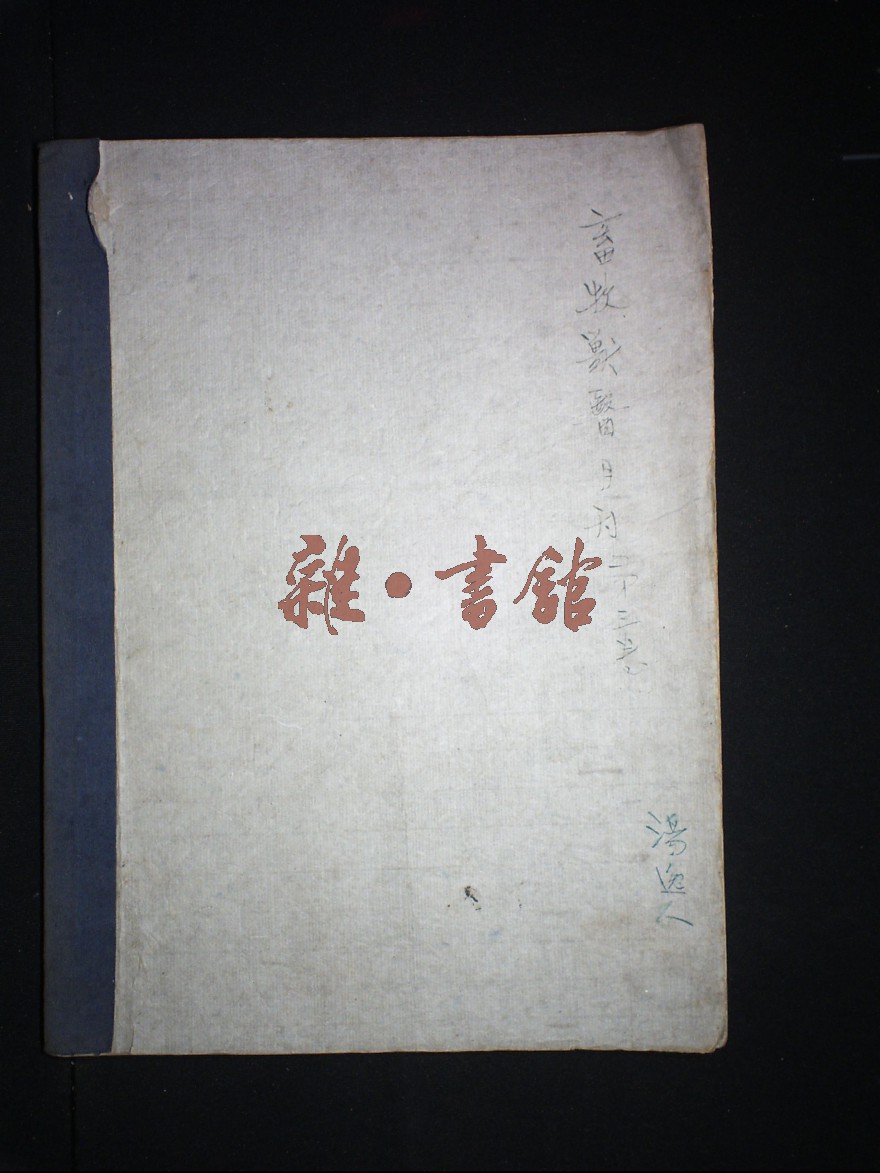 畜牧獸醫月刊第三卷
湯逸人
雜·書館